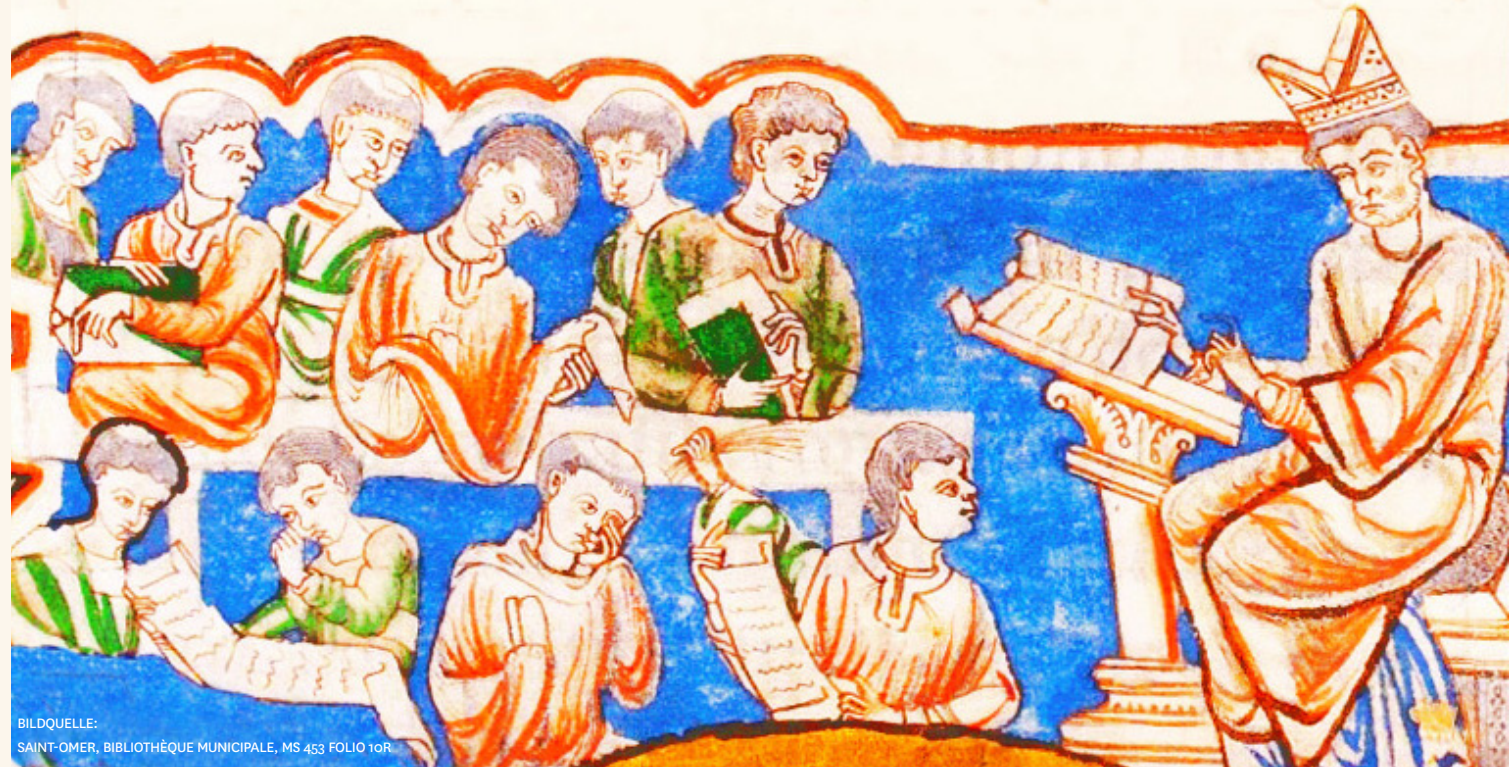 BILDQUELLE:
SAINT-OMER, BIBLIOTHÈQUE MUNICIPALE, MS 453 FOLIO 10R